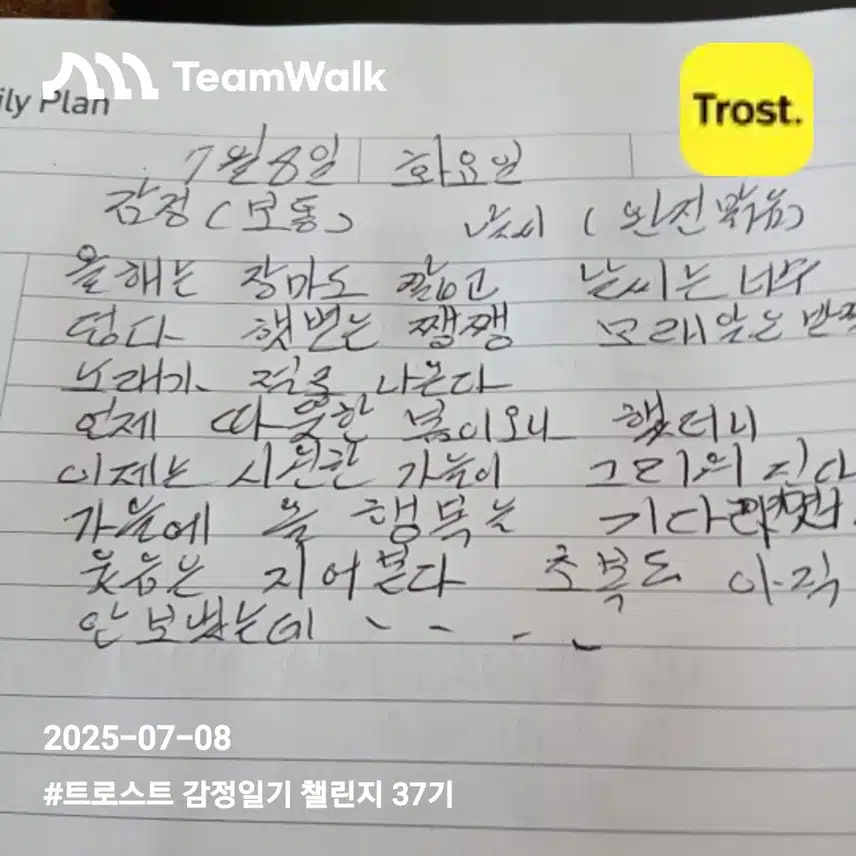 TeamWalk
ily Plan
Trost.
7월 8일 화요일
감정 (보통) 날씨 (완전 맑음)
올해는 장마도 짧고 날씨는 너무
덥다 햇볕는 쨍쨍 모래알은 반짝
노래가 절로 나온다
언제 따뜻한 봄이오나 했더니
이제는 시원한 가을이 그리워 진다
가을에 올 행복을
웃음은 지어본다 초복도 아직
안 보냈는데 - - - -
2025-07-08
#트로스트 감정일기 챌린지 37기